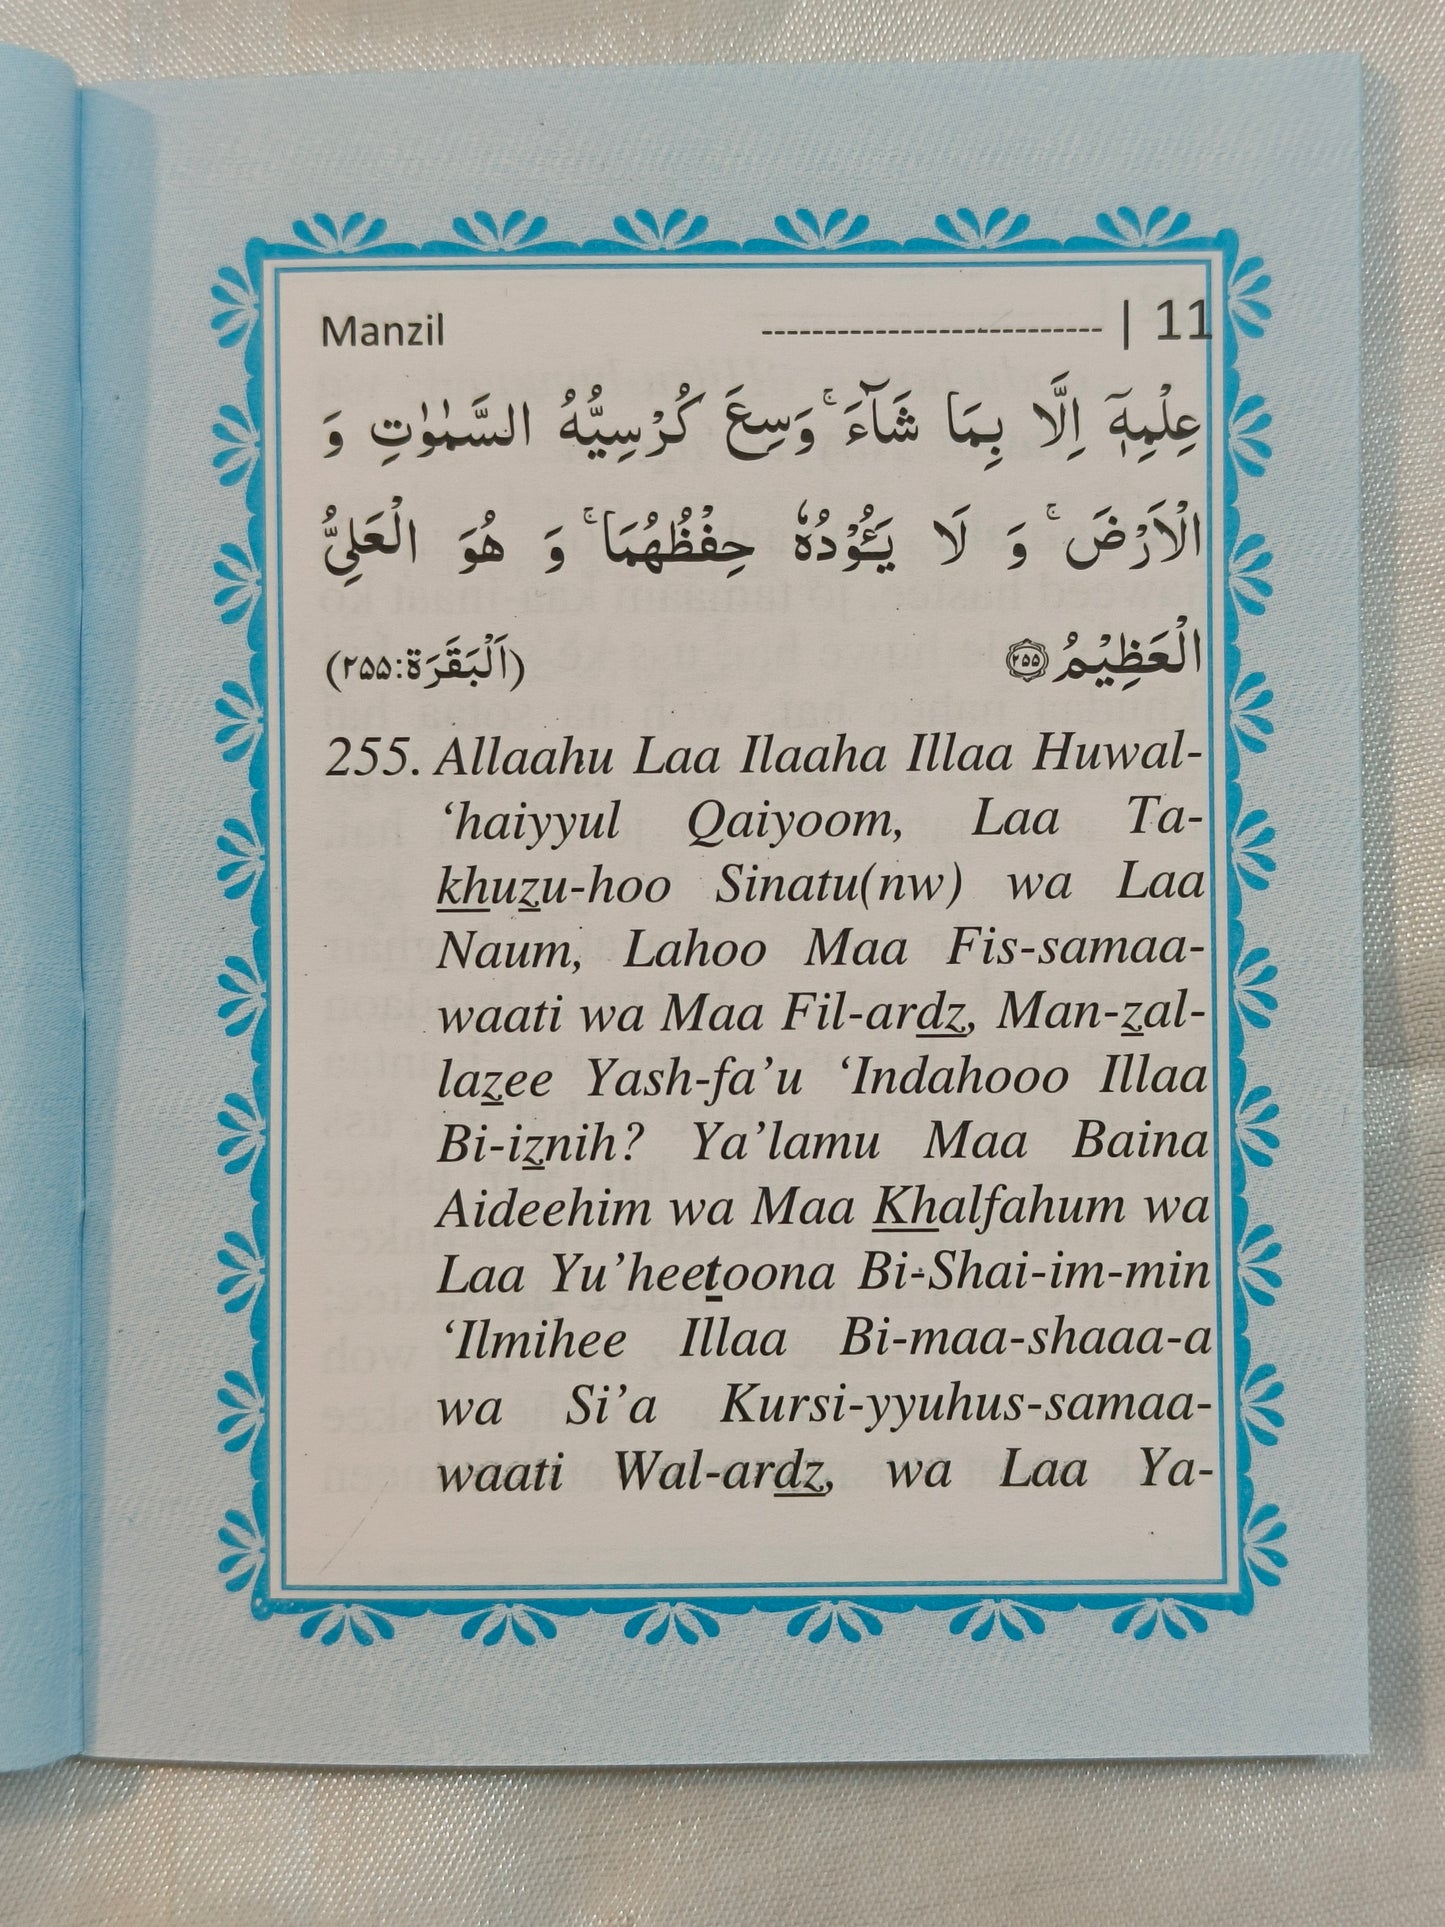 Manzil --------------------------- | 11
عِلْمِهٖٓ اِلَّا بِمَا شَآءَ ۚ وَسِعَ كُرْسِيُّهُ السَّمٰوٰتِ وَ
الْاَرْضَ ۚ وَ لَا يَـُٔوْدُهٗ حِفْظُهُمَا ۚ وَ هُوَ الْعَلِيُّ
الْعَظِيْمُ ۝۲۵۵ (اَلْبَقَرَة:۲۵۵)
255. Allaahu Laa Ilaaha Illaa Huwal-
‘haiyyul Qaiyoom, Laa Ta-
khuzu-hoo Sinatu(nw) wa Laa
Naum, Lahoo Maa Fis-samaa-
waati wa Maa Fil-ardz, Man-zal-
lazee Yash-fa’u ‘Indahooo Illaa
Bi-iznih? Ya’lamu Maa Baina
Aideehim wa Maa Khalfahum wa
Laa Yu’heetoona Bi-Shai-im-min
‘Ilmihee Illaa Bi-maa-shaaa-a
wa Si’a Kursi-yyuhus-samaa-
waati Wal-ardz, wa Laa Ya-